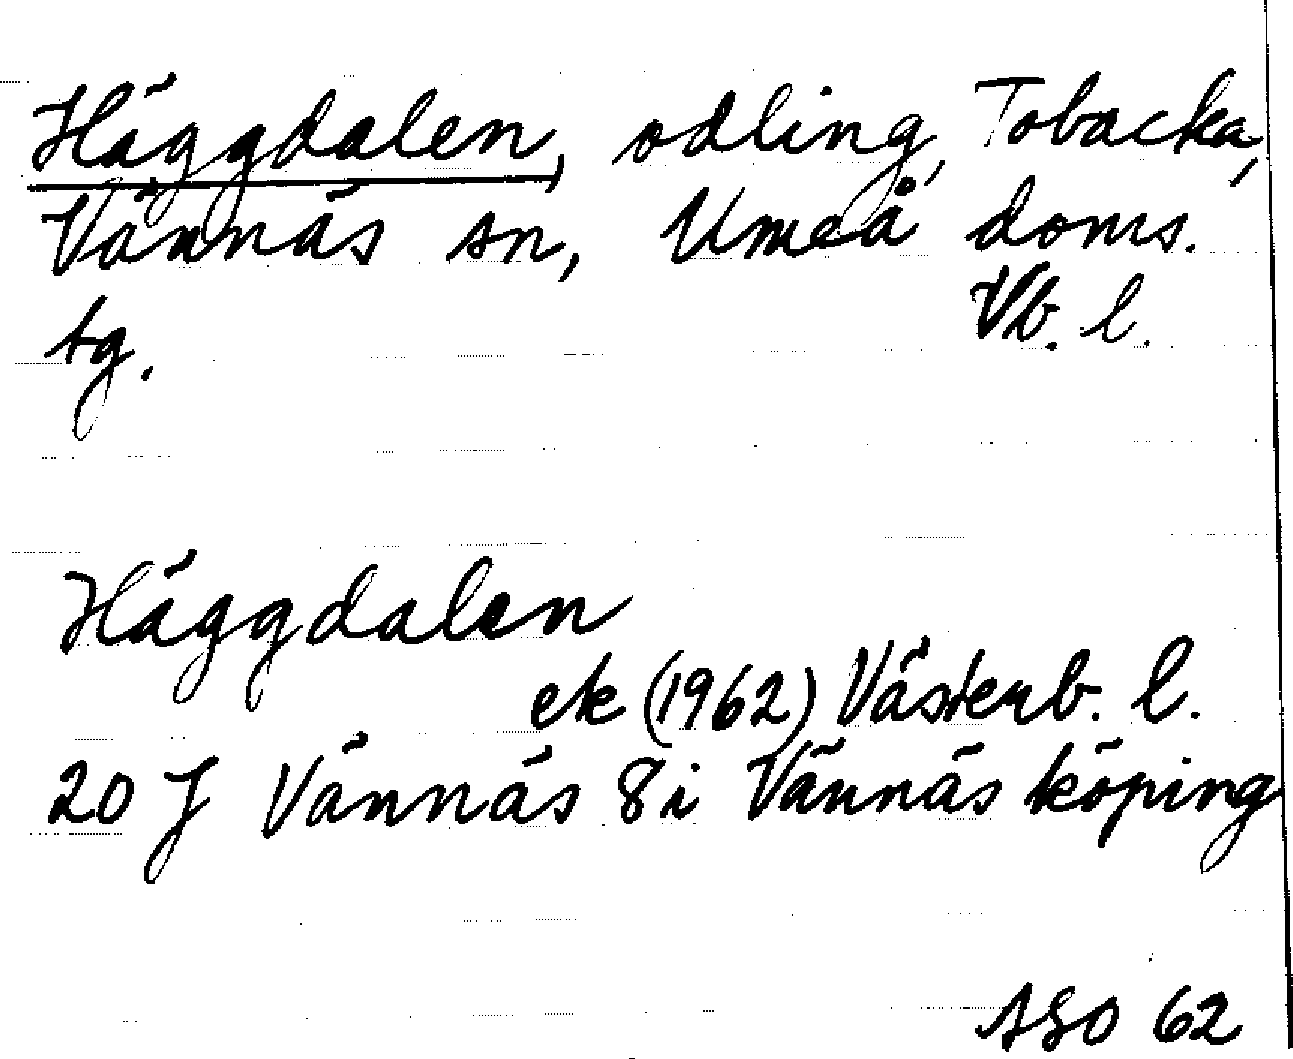 Häggdalen, odling, Tobacka,
Vännäs sn, Umeå doms.
tg. Vb. l.
Häggdalen
ek (1962) Västerb. l.
20 J Vännäs 8i Vännäs köping
ASO 62